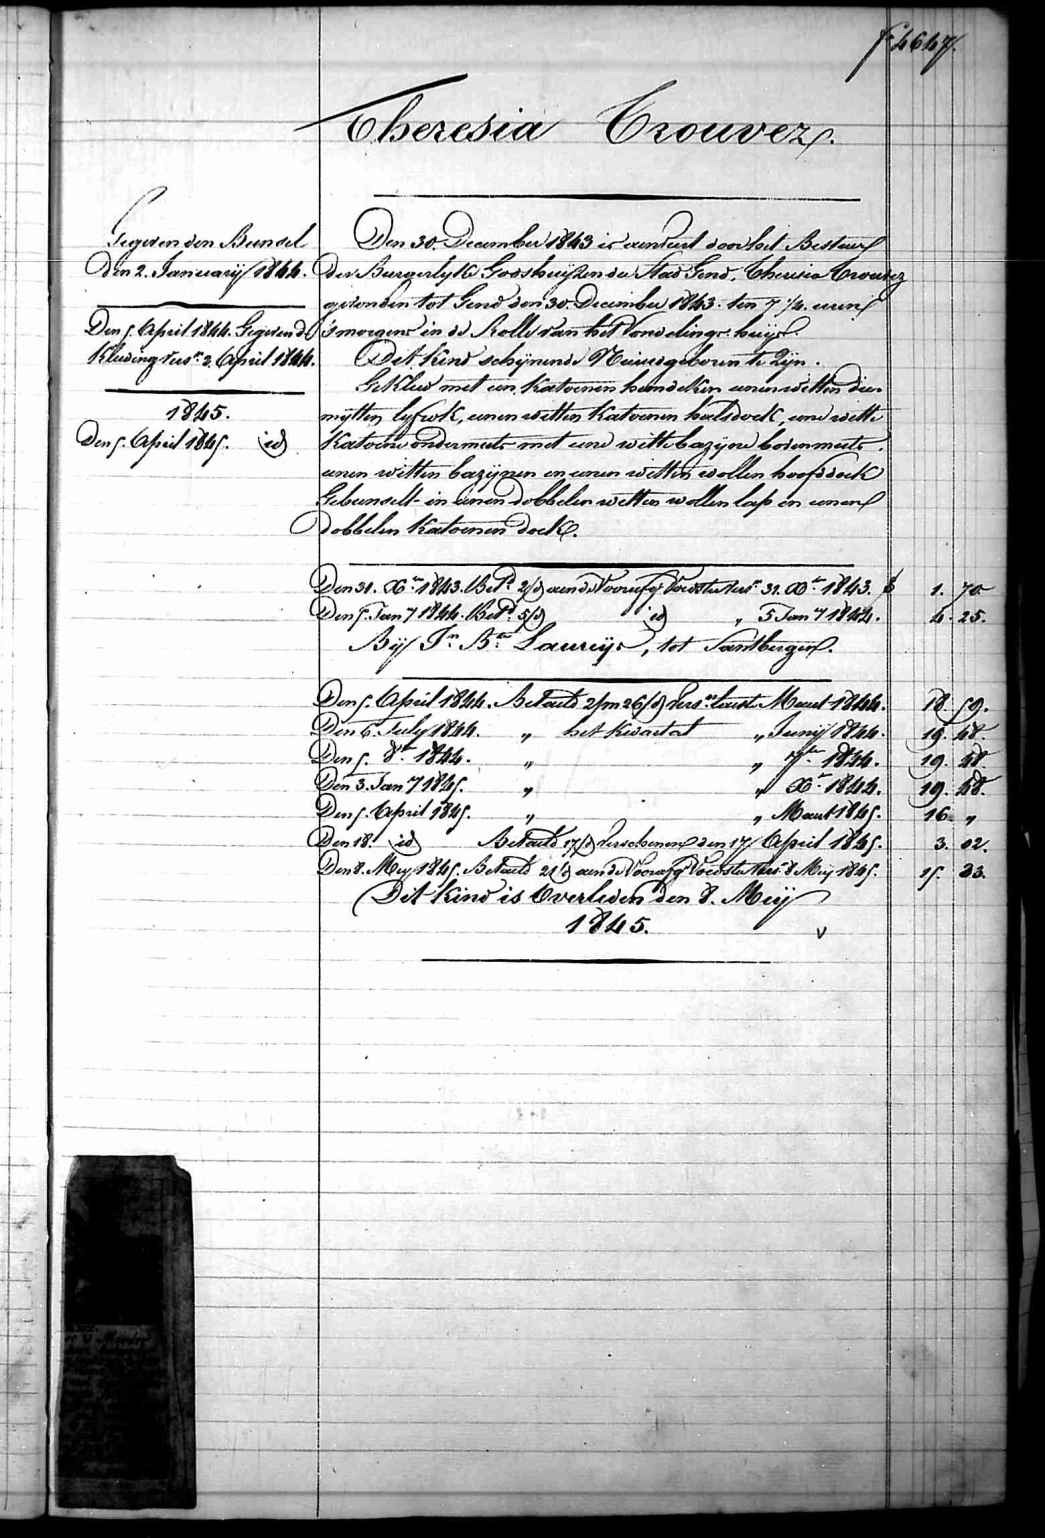 f° 4647.
Theresia Trouvez.
Gegeven den Bunsel
den 2. Januarij 1844.
Den 5. April 1844. Gegeven de
Kleeding vers.n 2. April 1844.
1845.
Den 5. April 1845. id
Den 30. December 1843 is aenveert door het Bestuer
der Burgerlyke Godshuijzen der Stad Gend, Theresia Trouvez
gevonden tot Gend den 30. December 1843. ten 7 1/4. uren
's morgens in de Rolle van het Vondelings-huijs.
Dit kind schijnende Nieuwgeboren te Zijn.
Gekleed met een Katoenen hemdeken eenen witten die-
mitten lyfrok, eenen witten Katoenen halsdoek, eene witte
Katoene ondermuts met eene witte bazijne bovenmuts.
eenen witten bazijnen en eenen witten wollen hoofddoek
Gebunselt in eenen dobbelen witten wollen lap en eenen
dobbelen Katoenen doek.
Den 31. Xr 1843. Betd 2/d aen de Voorafg Voedster vers. 31. Xr 1843. 1. 70
Den 5. Jany 1844. Betd 5/d id „ 5 Jany 1844. 4. 25.
Bij Jn Bte Laureijs, tot Santbergen.
Den 5. April 1844. Betaeld 2/m 26/d vers.n laest Maert 1844. 18. 59.
Den 6. July 1844. „ het kwartal „ Junij 1844. 19. 48.
Den 5. 8br 1844. „ „ 7ber 1844. 19. 48.
Den 3. Jany 1845. „ „ Xr 1844. 19. 48.
Den 5. April 1845. „ „ Maert 1845. 16 „
Den 18. id Betaeld 17/d verschenen den 17 April 1845. 3. 02.
Den 8. Mey 1845. Betaeld 21/d aen de Voorafg Voedster vers. 8 Meij 1845. 15. 33.
Dit kind is Overleden den 8. Meij
1845.
v